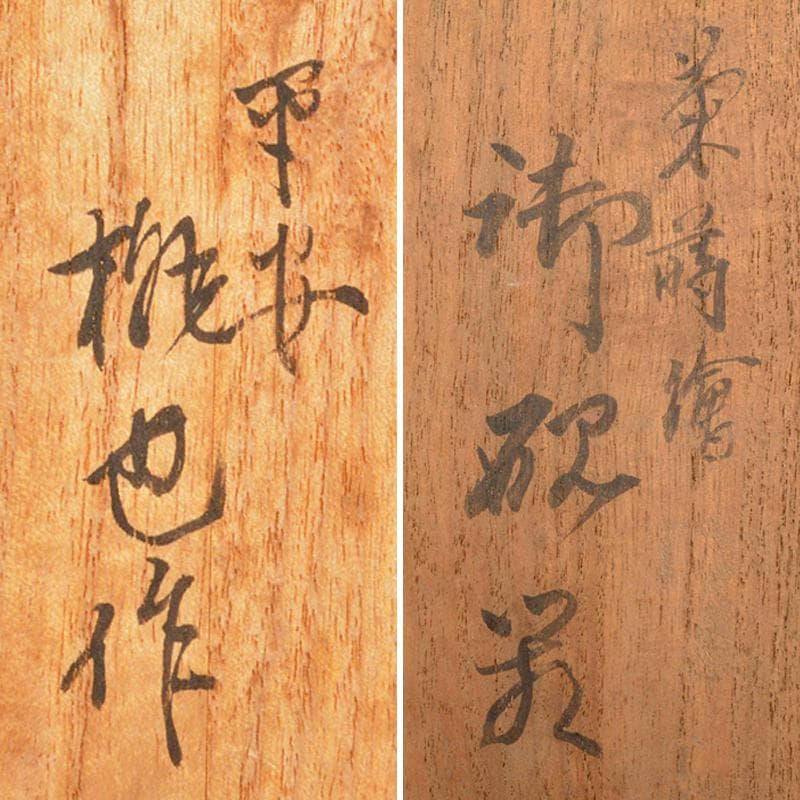 菊蒔繪
御硯箱
平安
也作